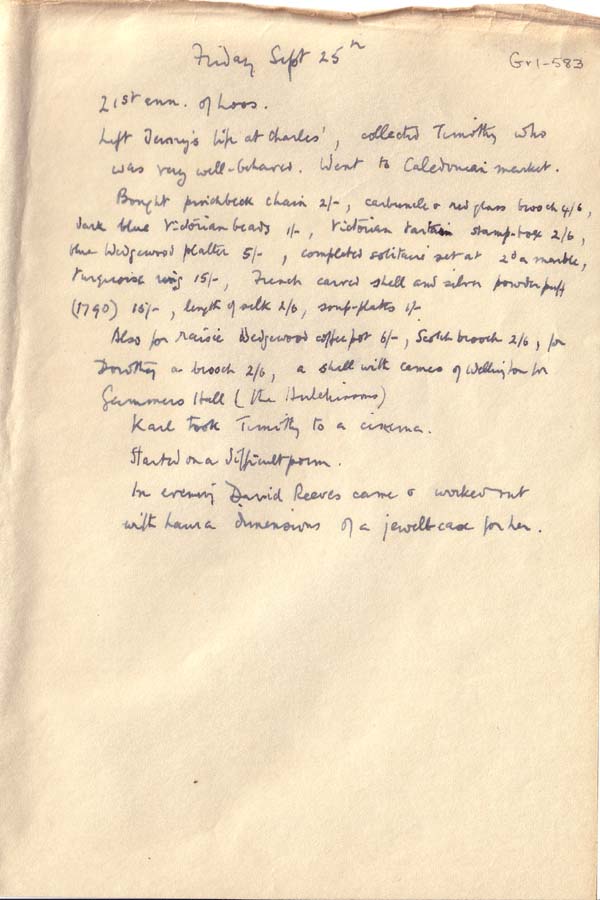 Friday Sept 25th
Gr1-583
21st ann. of Loos.
Left Jenny's life at Charles', collected Timothy who
was very well-behaved. Went to Caledonian market.
Bought pinchbeck chain 2/-, carbuncle & red glass brooch 4/6,
dark blue Victorian beads 1/-, Victorian tartan stamp-box 2/6,
blue Wedgewood platter 5/-, completed solitaire set at 2d a marble,
turquoise ring 15/-, French carved shell and silver powder puff
(1790) 15/-, length of silk 2/6, soup-plates 1/-
Also for Maisie Wedgewood coffee pot 6/-, Scotch brooch 2/6, for
Dorothy a brooch 2/6, a shell with cameo of Wellington for
Hall (the Hutchinsons)
Karl took Timothy to a cinema.
Started on a difficult poem.
In evening David Reeves came & worked out
with Laura dimensions of a jewel-case for her.